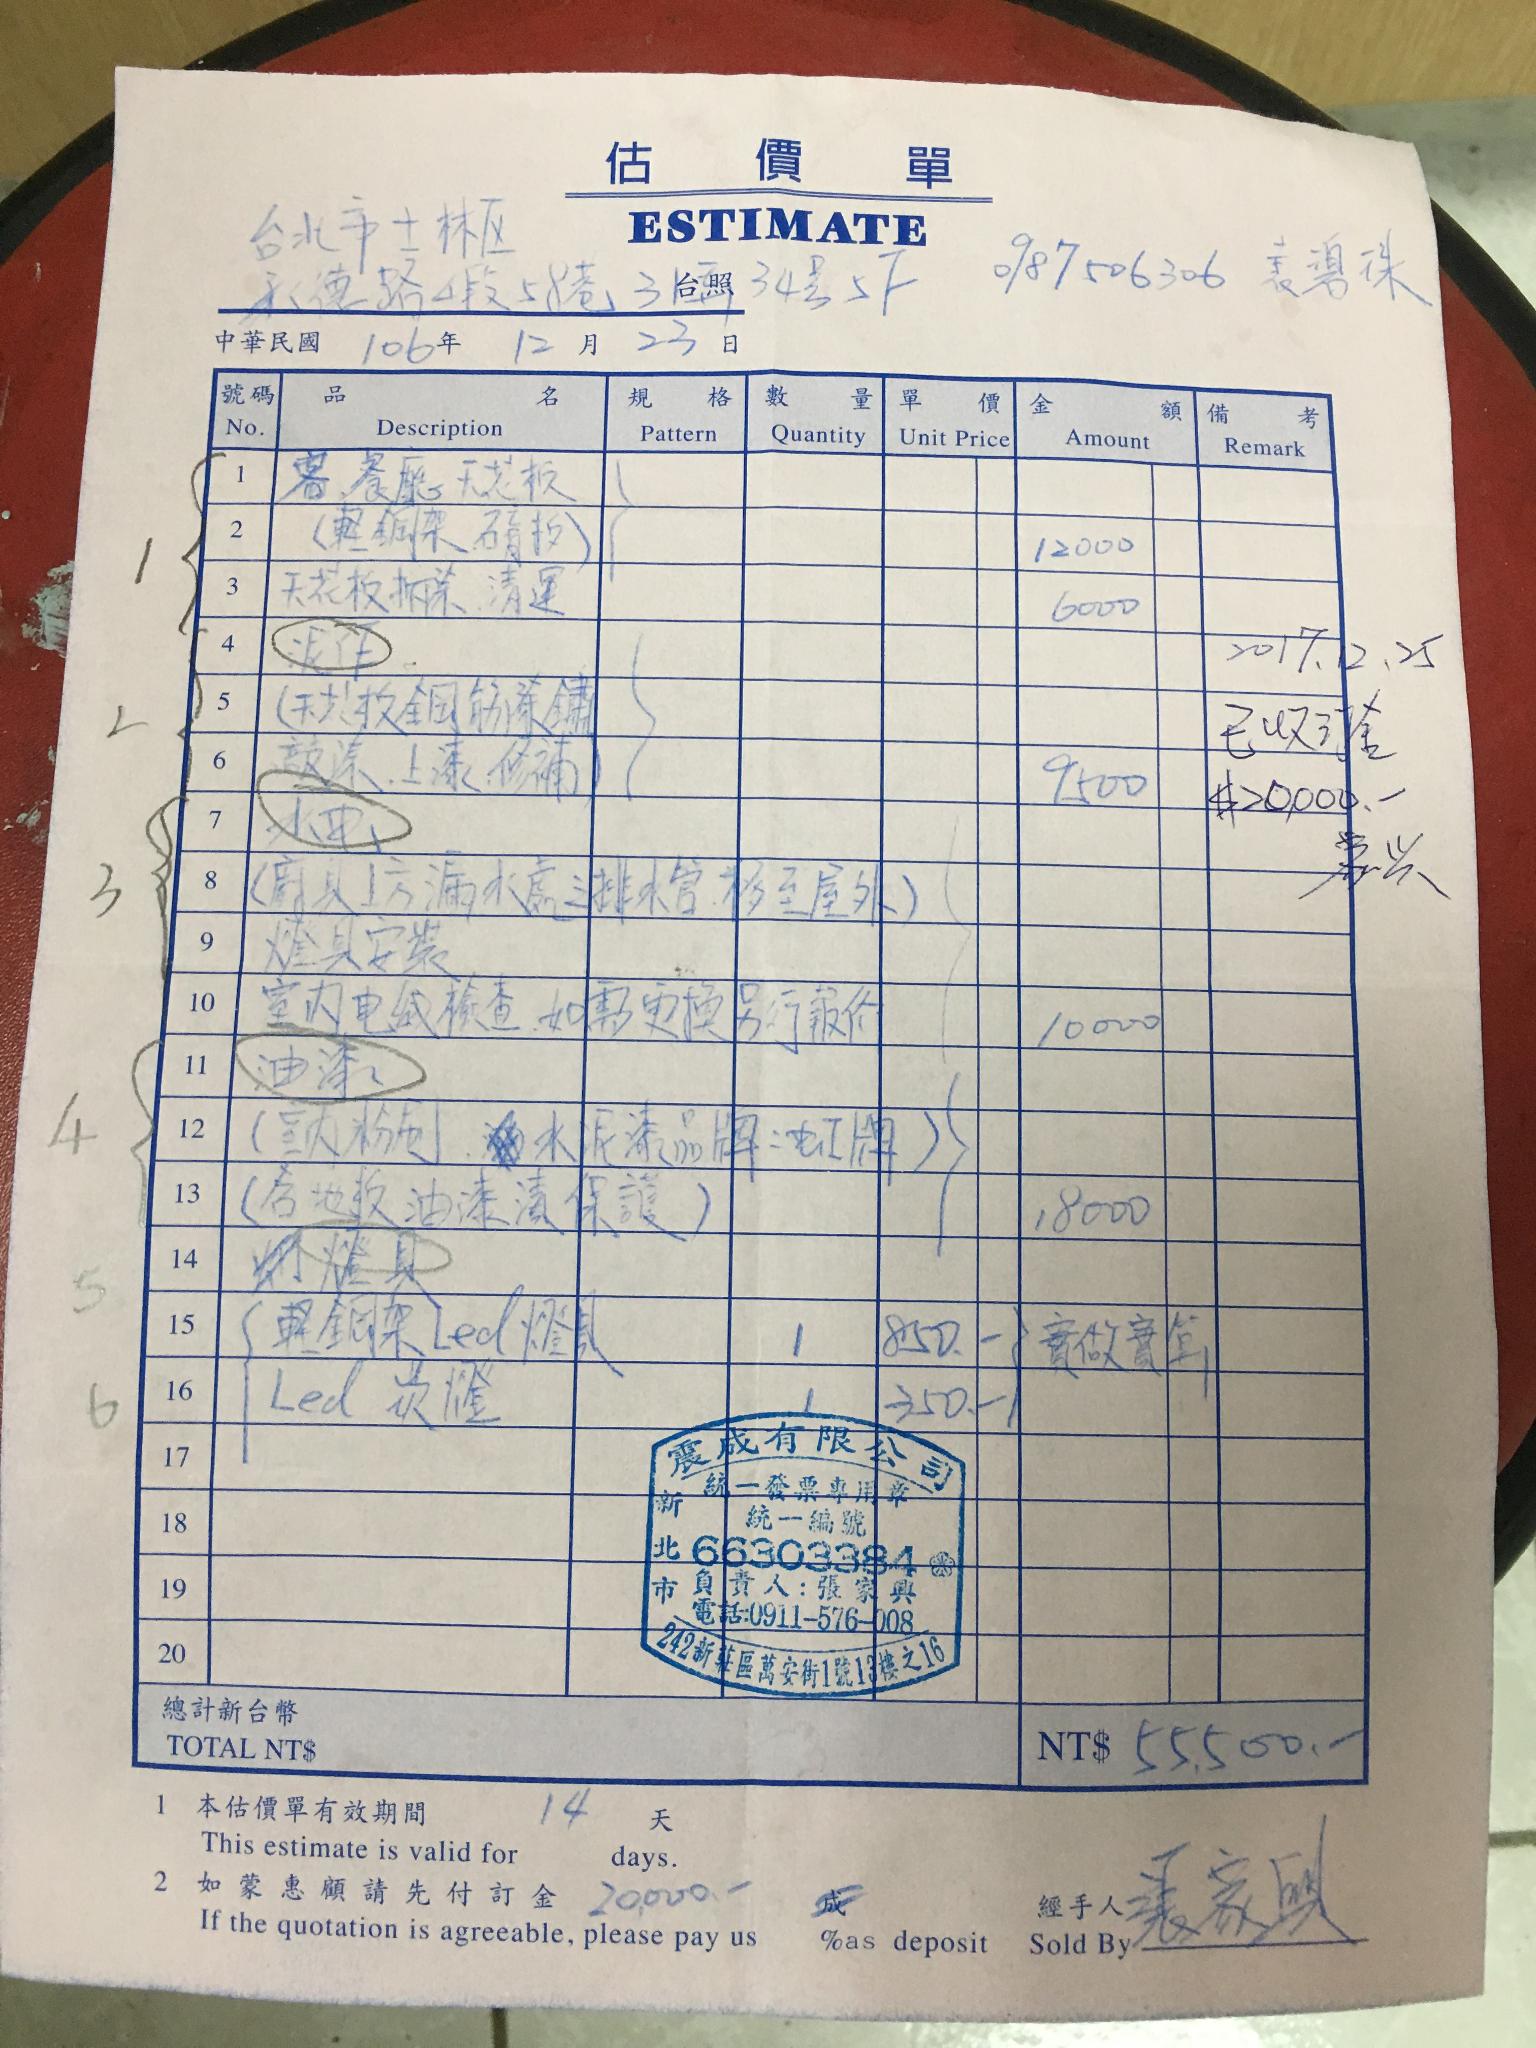 估價單
ESTIMATE
台北市士林区
承德路4段58巷3弄34号5F
台照
0987506306 袁碧珠
中華民國 106年 12月 23日
號碼 品名 規格 數量 單價 金額 備考
No. Description Pattern Quantity Unit Price Amount Remark
1 客.餐廳.天花板
2 (軽鋼架.石膏板) 12000
3 天花板拆除.清運 6000
4 泥作
2017.12.25
5 (天花板鋼筋除鏽
已收訂金
6 敲除.上漆.修補) 9500
$20,000.-
7 水电
家兴
8 (廚具上方漏水處之排水管.移至屋外)
9 燈具安裝
10 室内电線檢查.如需更換另行報价 10000
11 油漆
12 (室内粉刷.水泥漆品牌:虹牌)
13 (含地板油漆漬保護) 18000
14 燈具
15 軽鋼架Led燈具 1 850.- 實做實算
16 Led 崁燈 1 350.-
17
18
19
20
1
2
3
4
5
6
震成有限公司
統一發票專用章
統一編號
新北市
66303384
負責人:張家興
電話:0911-576-008
242新莊區萬安街1號13樓之16
總計新台幣
TOTAL NT$ NT$ 55,500.-
1 本估價單有效期間 14 天
This estimate is valid for days.
2 如蒙惠顧請先付訂金 20,000.- 成
If the quotation is agreeable, please pay us %as deposit
經手人 張家興
Sold By